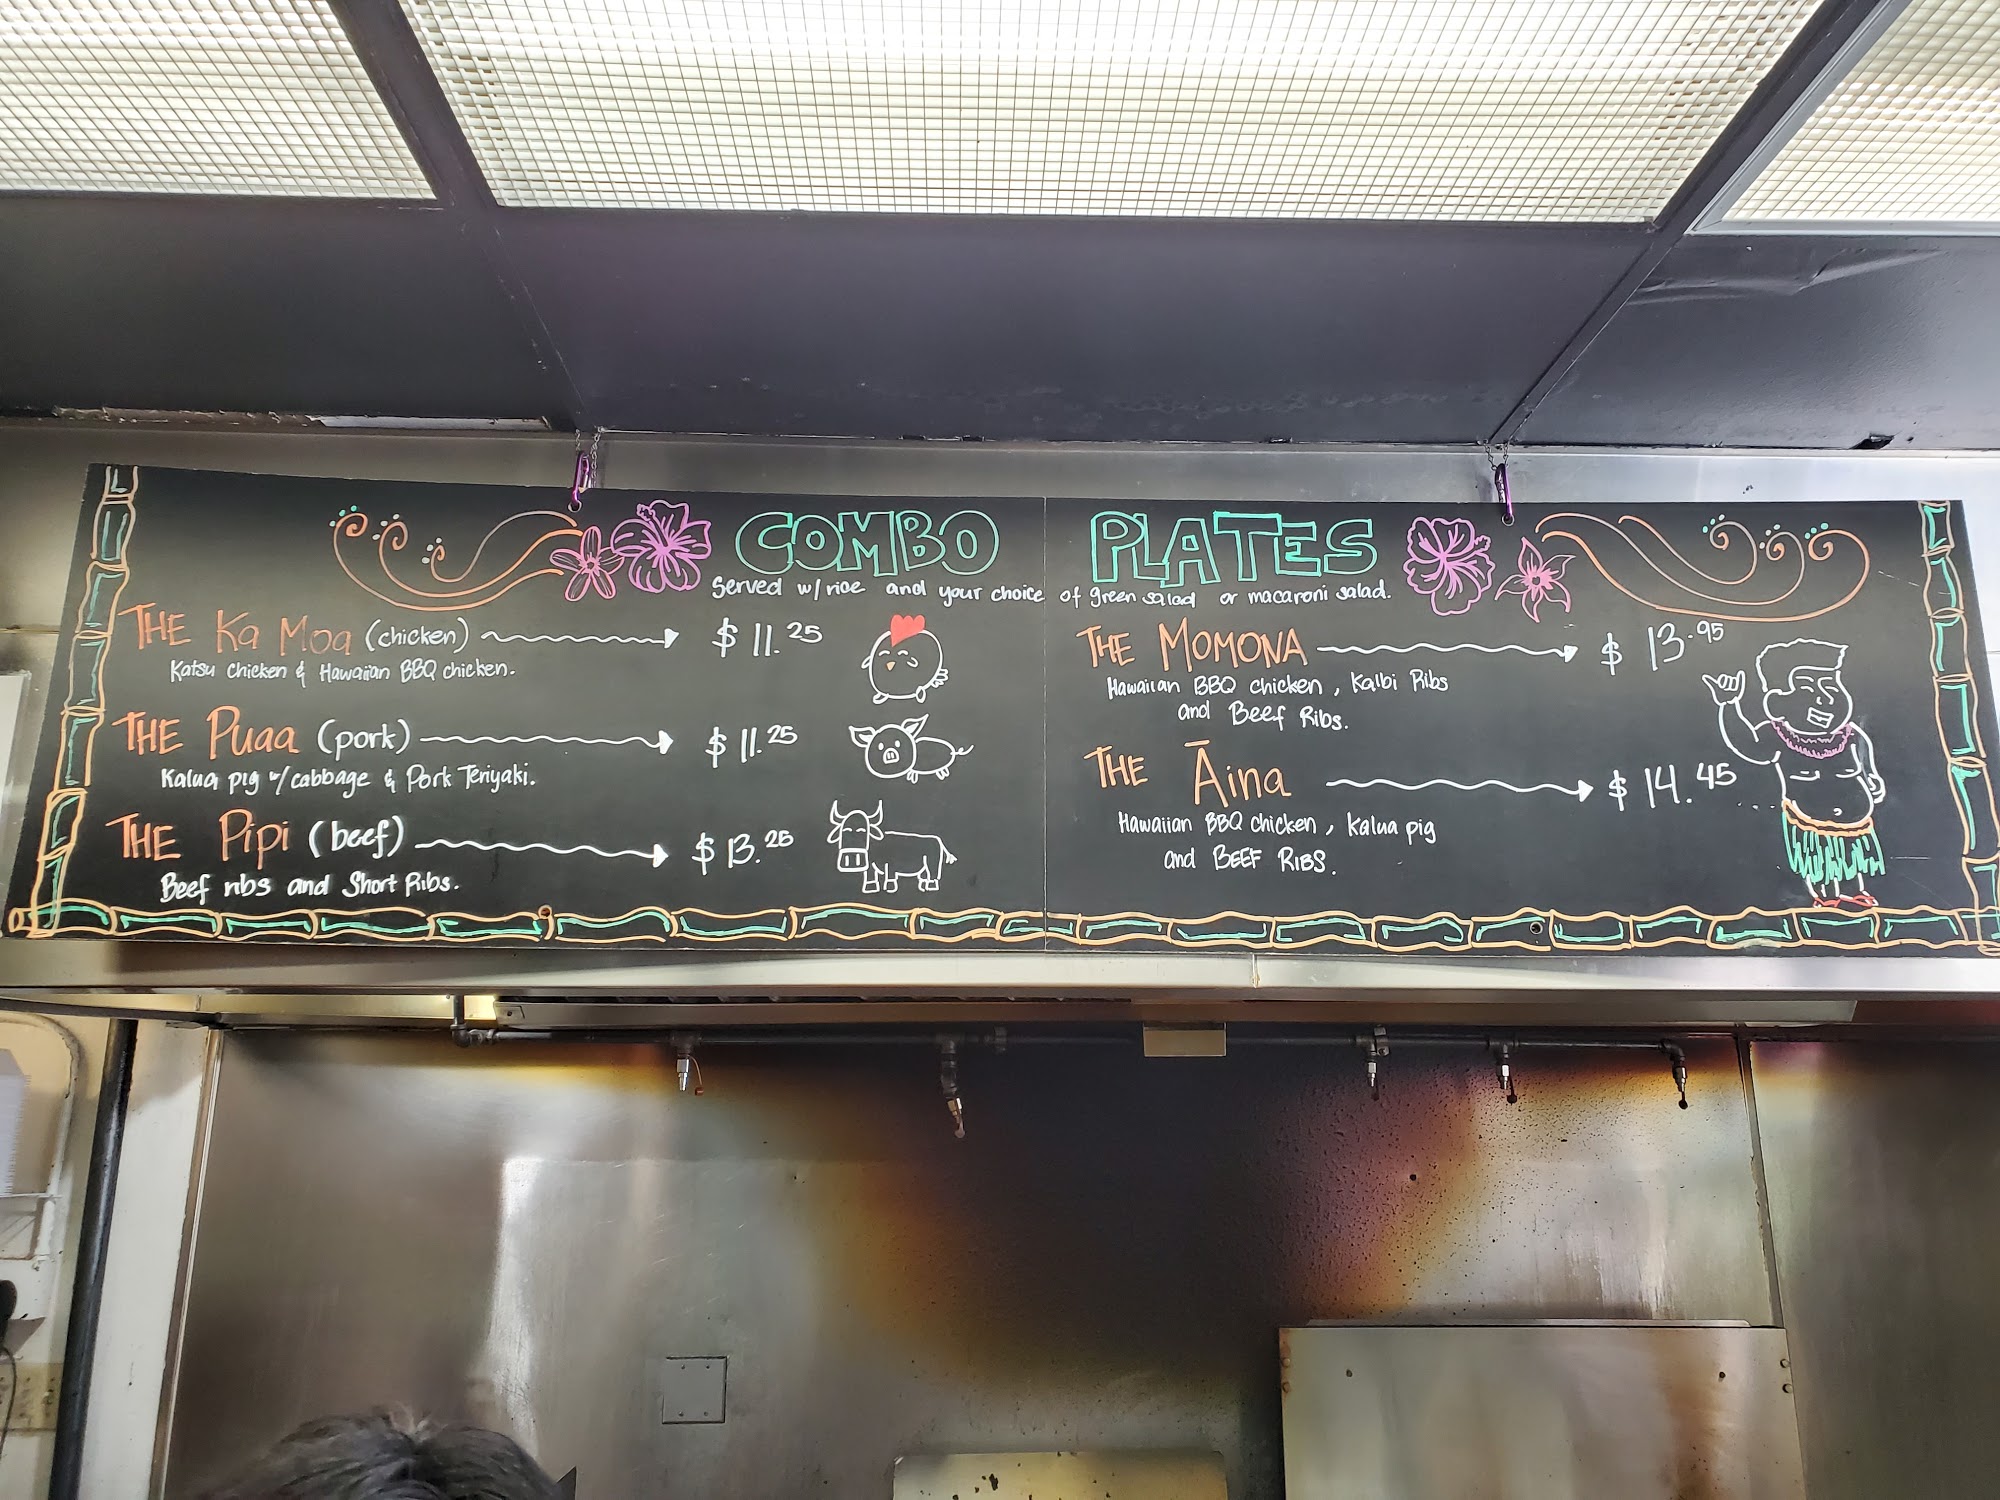 COMBO PLATES
Served w/ rice and your choice of green salad or macaroni salad.
THE Ka Moa (chicken) $ 11.25
Katsu chicken & Hawaiian BBQ chicken.
THE Puaa (pork) $ 11.25
Kalua pig w/cabbage & Pork Teriyaki.
THE Pipi (beef) $ 13.25
Beef ribs and Short Ribs.
THE MOMONA $ 13.95
Hawaiian BBQ chicken, Kalbi Ribs
and Beef Ribs.
THE Āina $ 14.45
Hawaiian BBQ chicken, Kalua pig
and BEEF RIBS.